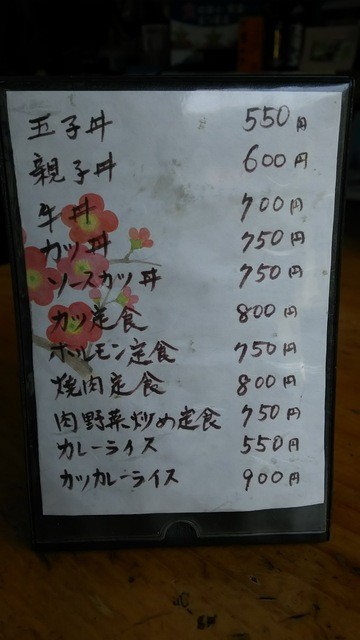 玉子丼 550円
親子丼 600円
牛丼 700円
カツ丼 750円
ソースカツ丼 750円
カツ定食 800円
ホルモン定食 750円
焼肉定食 800円
肉野菜炒め定食 750円
カレーライス 550円
カツカレーライス 900円